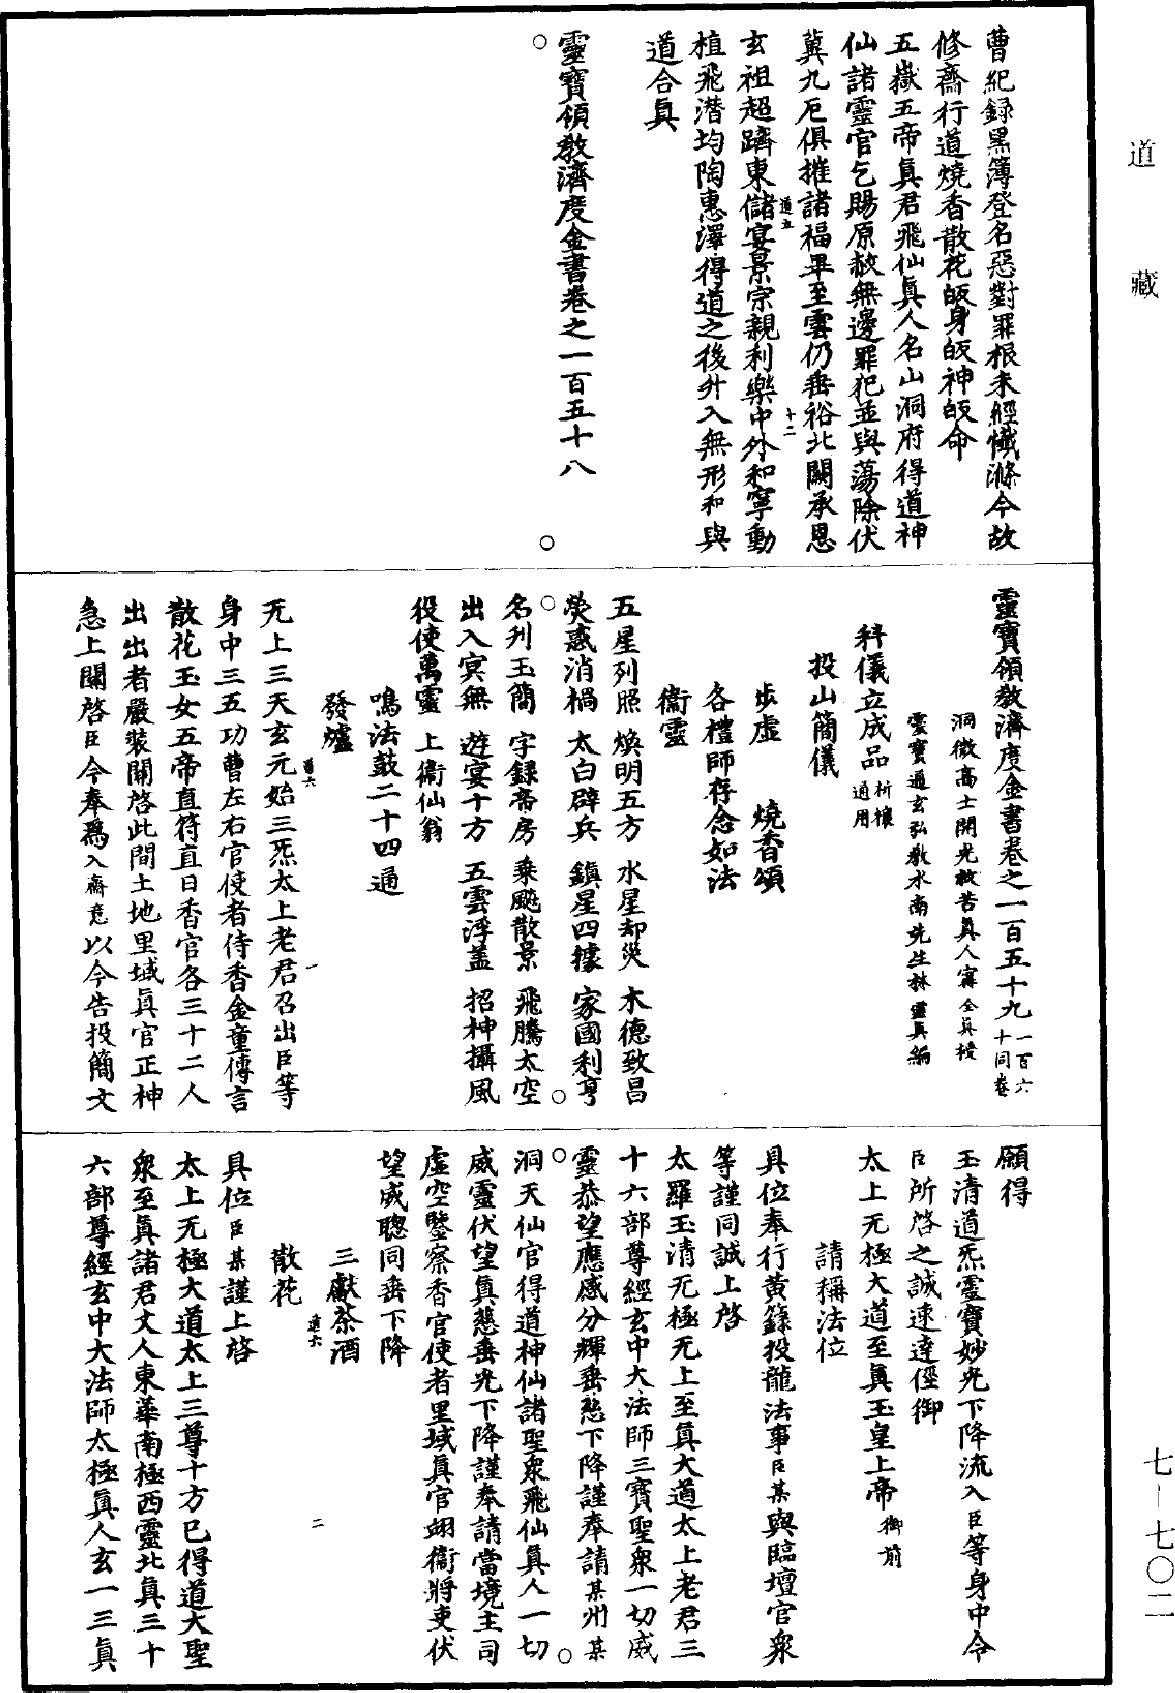 道藏
七—七〇二
曹紀録黑簿登名惡對罪根未經懺滌今故
修齋行道燒香散花皈身皈神皈命
五嶽五帝眞君飛仙眞人名山洞府得道神
仙諸靈官乞賜原赦無邊罪犯並與蕩除伏
冀九厄俱摧諸福畢至雲仍垂裕北闕承恩
玄祖超躋東儲宴景宗親利樂中外和寧動
植飛潛均陶惠澤得道之後升入無形和與
道合眞
道五
十二
靈寶領教濟度金書卷之一百五十八
靈寶領教濟度金書卷之一百五十九 一百六十同卷
洞微高士開光救苦眞人甯全眞授
靈寶通玄弘教水南先生林靈眞編
科儀立成品 祈禳通用
投山簡儀
步虛 燒香頌
各禮師存念如法
衞靈
五星列照 煥明五方 水星却災 木德致昌
熒惑消禍 太白辟兵 鎮星四據 家國利亨
名刋玉簡 字録帝房 乘飈散景 飛騰太空
出入冥無 遊宴十方 五雲浮蓋 招神攝風
役使萬靈 上衞仙翁
鳴法鼓二十四通
發爐
道六
一
无上三天玄元始三炁太上老君召出臣等
身中三五功曹左右官使者侍香金童傳言
散花玉女五帝直符直日香官各三十二人
出出者嚴裝關啓此間土地里域眞官正神
急上關啓臣今奉爲入齋意以今告投簡文
願得
玉清道炁靈寶妙光下降流入臣等身中令
臣所啓之誠速達徑御
太上无極大道至眞玉皇上帝御前
請稱法位
具位奉行黄籙投龍法事臣某與臨壇官衆
等謹同誠上啓
太羅玉清无極无上至眞大道太上老君三
十六部尊經玄中大法師三寶聖衆一切威
靈恭望應感分輝垂慈下降謹奉請某州某
洞天仙官得道神仙諸聖衆飛仙眞人一切
威靈伏望眞慈垂光下降謹奉請當境主司
虛空鑒察香官使者里域眞官翊衞將吏伏
望威聰同垂下降
三獻茶酒
散花
道六
二
具位臣某謹上啓
太上无極大道太上三尊十方已得道大聖
衆至眞諸君丈人東華南極西靈北眞三十
六部尊經玄中大法師太極眞人玄一三眞